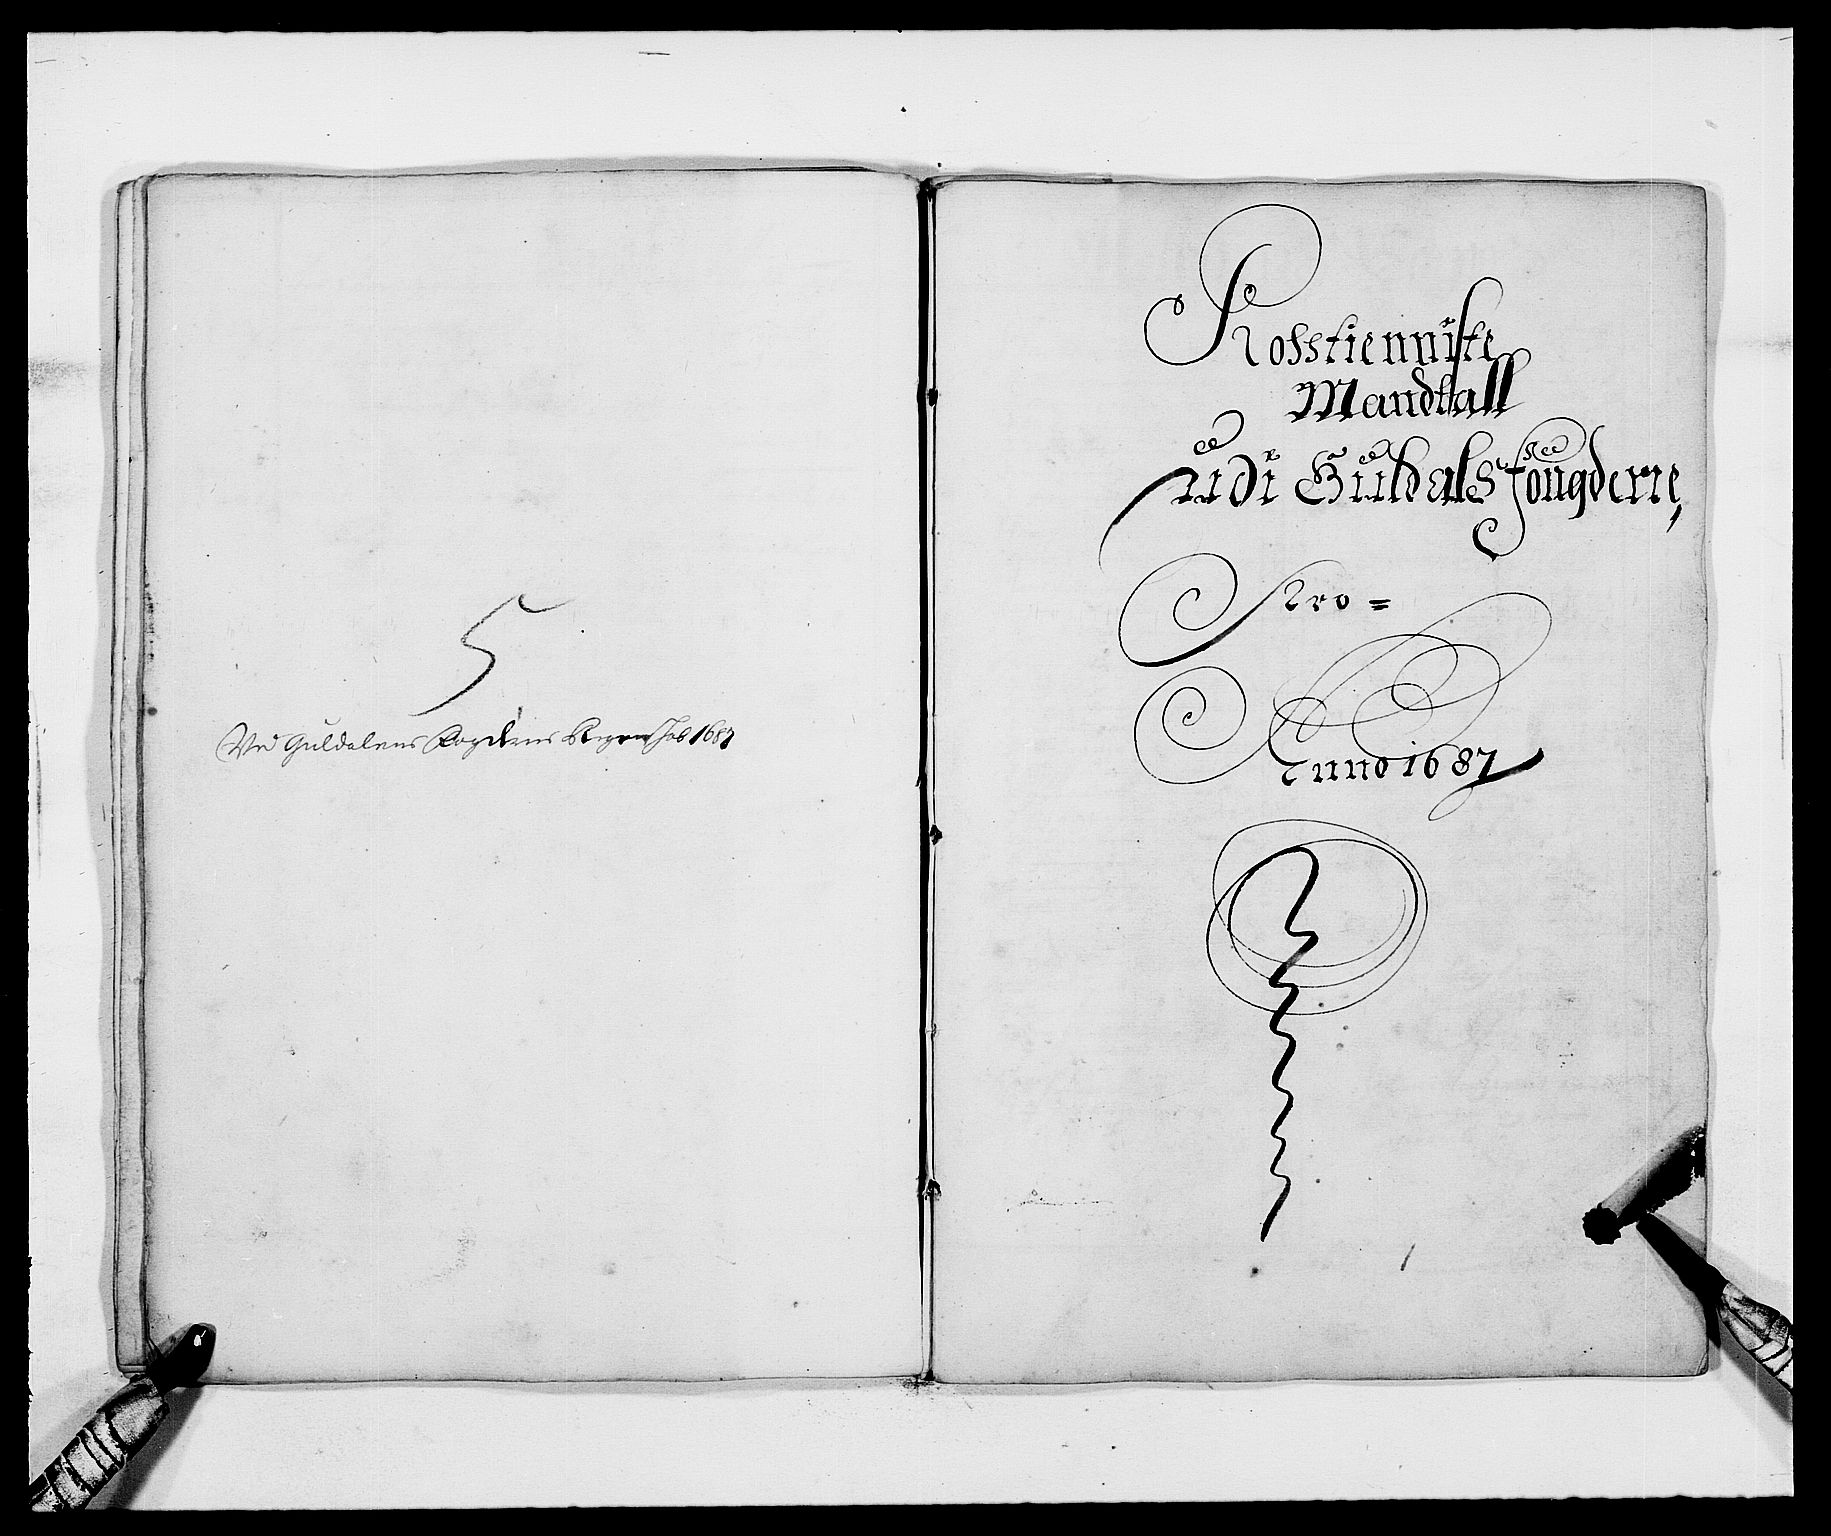 5
Ved Guldalens Fogderies Regenskab 1687
Rosstienniste
Mandtall
udi Guldals fougderie,
Pro =
Anno 1687